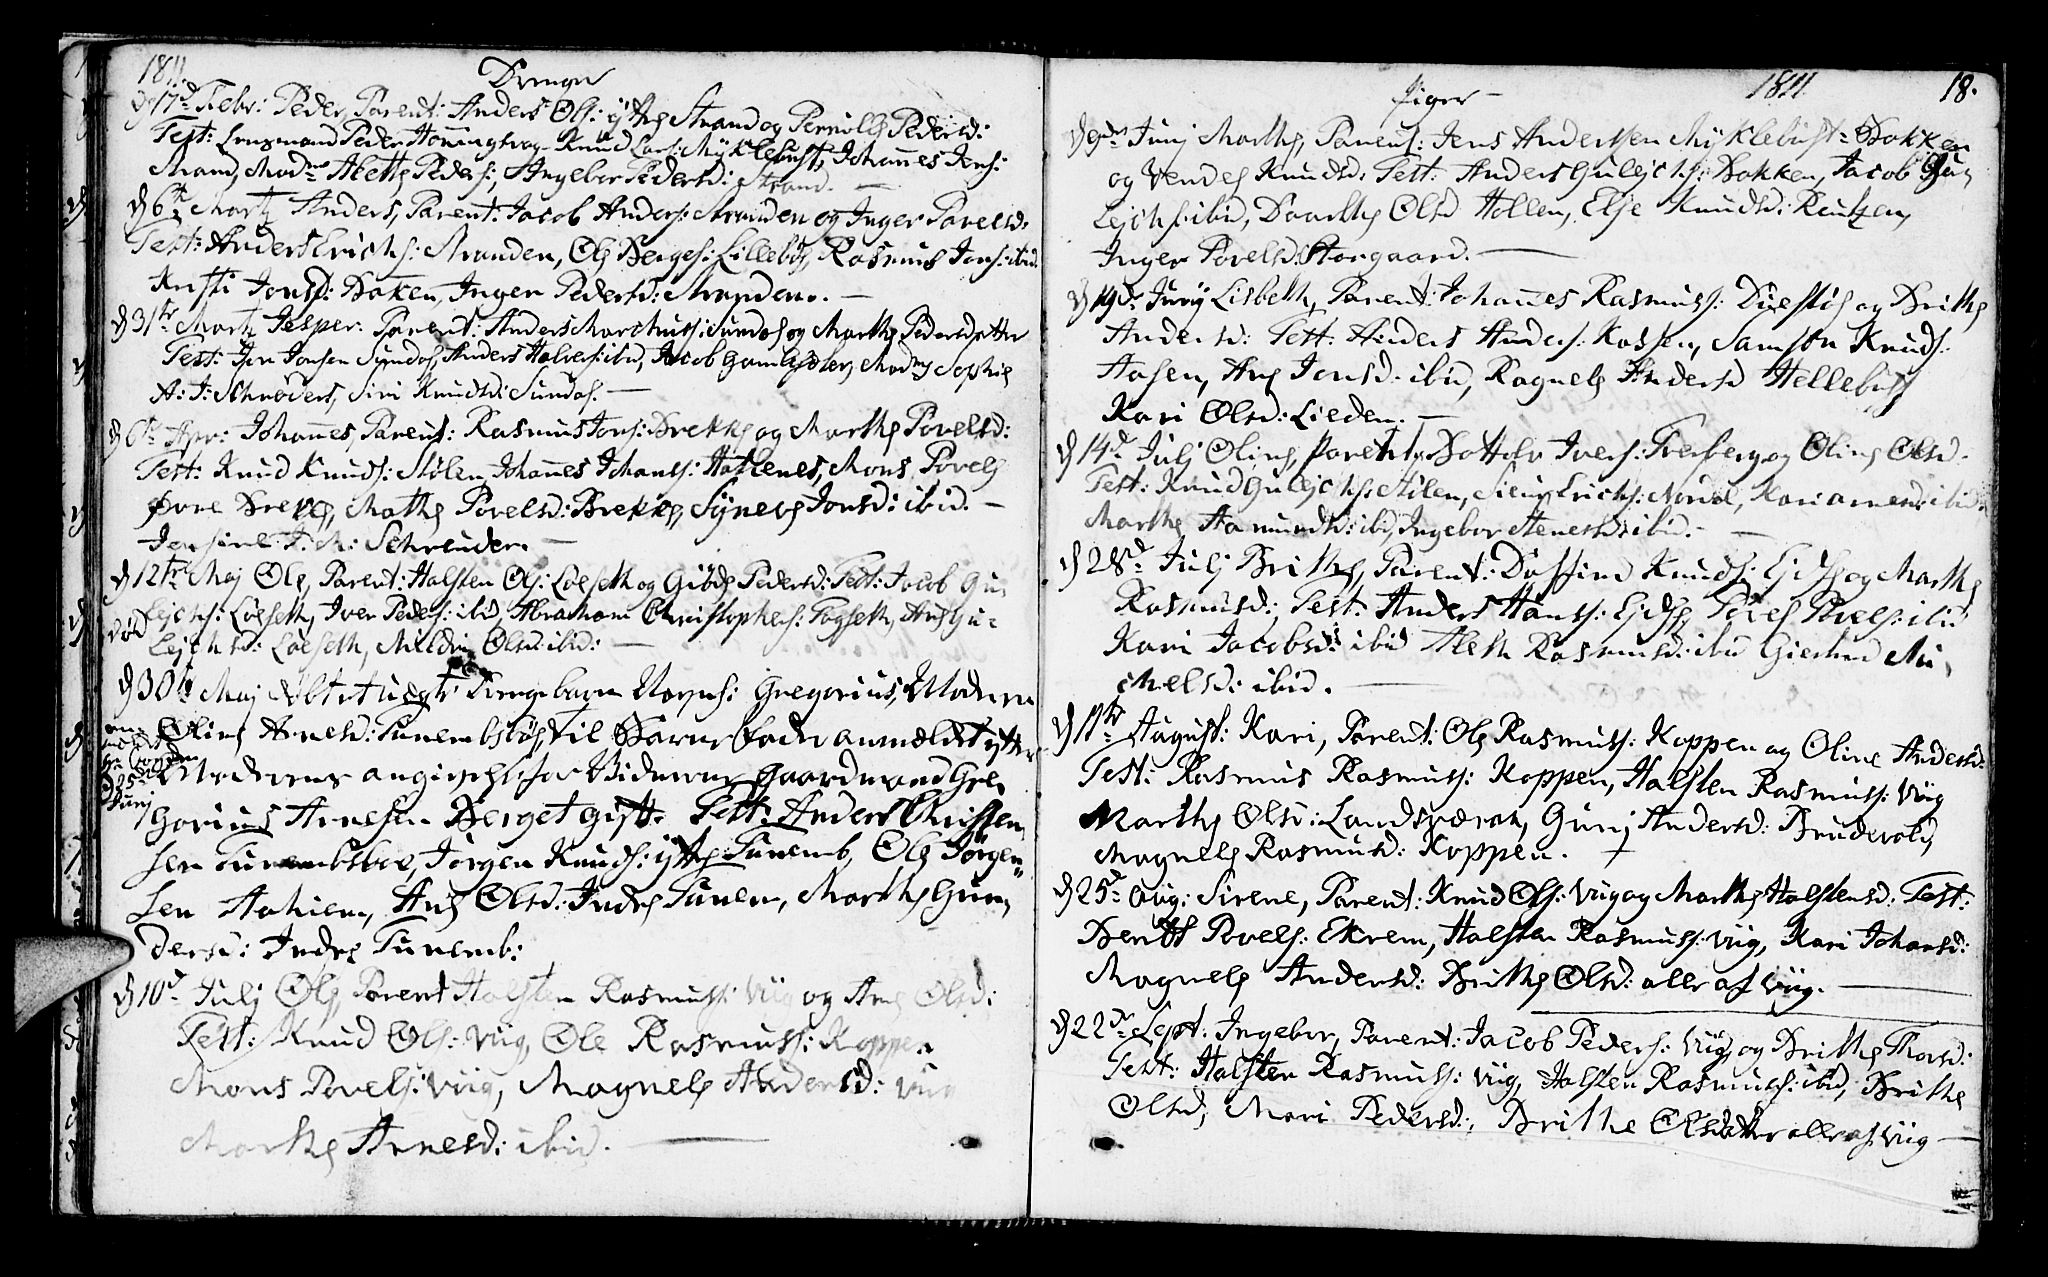 1811.
Drenge
D 17d Febr: Peder, Parent: Anders Ols: yttre Strand og Pernille Pedersd:
Test: Peder Honningsvog Knud Lars: Myklebust, Johannes Jons:
Strand, Madme Alethe Peders:, Ingebor Pedersd: Strand. —
D 6te Marty Anders, Parent: Jacob Anders: Stranden og Inger Povelsd:
Test: Anders Erichs: Stranden, Ole Berges: Lillebøe, Rasmus Jons: ibid.
Kristi Jonsd: Bakken, Inger Pedersd: Stranden. —
D 31te Marty Jesper: Parent: Anders Marchuss: Sundal og Marthe Pedersdatter
Test: Jon Jonsen Syndal, Anders Halvers: ibid, Jacob Gamlesøter, Madme Sophie
A: J: Schrøders, Siri Knudsd: Sundal. —
D 6te Apr: Johannes, Parent: Rasmus Jons: Brekke og Marthe Povelsd:
Test: Knud Knuds: Stølen, Johannes Johans: Hatlenes, Mons Povels
Øvre Brekke, Mathe Povelsd: Brekke, Syneve Jonsd: ibid. —
Jensine J. M: Schreuder. —
D 12te Maj Ole, Parent: Halsten Ols: Løeseth og Giøde Pedersd: Test: Jacob Gu-
død lejchs: Løeseth, Iver Peders: ibid, Abraham Christophers: Fogseth, Ane Gu-
lejchsd: Løeseth, Mildri Olsd: ibid: —
D 30te Maj Drengebarn Gregorius, Moderen
Oline Arnesd: Tunembsbøe, til Barne Fader anmeldet efter
Moderens angivelse Gaardmand Gre-
D 25de
Junj
gorius Arnesen Berget gift. Test: Anders Christen-
sen Tunembsboe, Jørgen Knuds: yttre Tunemb, Ole Jørgen-
sen Aahiem, Ane Olsd: Indre Tunem, Marthe Gun-
dersd: Indre Tunemb:
D 10d Julj Ole Parent Halsten Rasmuss: Viig og Ane Olsd:
Test: Knud Ols: Viig, Ole Rasmuss: Koppen
Mons Povels: Viig, Magnele Andersd: Viig
Marthe Arnesd: ibid. —
Piger —
1811
18.
D 9de Junj Marthe, Parent: Jens Andersen Myklebust Bakken
og Vendel Knudsd. Test: Anders Gulejchs: Bakken, Jacob Gu-
lejchs: ibid, Daarthe Olsd Hollen, Else Knudsd: Reutzen,
Inger Povelsd: Storgaard. —
D 19de Junij Lisbeth, Parent: Johannes Rasmuss: Duestøl og Brithe
Andersd: Test: Anders Anders: Kossen, Samson Knuds:
Aasen, Ane Jonsd. ibid, Ragnele Andersd Hellebust
Kari Olsd: Lieden. —
D 14d Julj Oline, Parent: Bottolv Ivers: Freberg og Oline Olsd.
Test: Knud Gulejchs: Stølen, Sivert Erichs: Nordal, Kari Arnesd: ibid.
Marthe Aamundsd: ibid, Ingebor Stenersd: ibid. —
D 28d Julj Brithe, Parent: Dotfind Knuds: Eide og Marthe
Rasmusd: Test: Anders Hans: Eide, Povel Povels: ibid
Kari Jacobsd: ibid Aleth Rasmusd: ibid Giertrud Mi-
chelsd: ibid. —
D 11te August: Kari, Parent: Ole Rasmuss: Koppen og Oline Andersd:
Test: Rasmus Rasmuss: Koppen, Halsten Rasmuss: Viig
Marthe Olsd: Landsværch, Gurj Andersd: Brudevold,
Magnele Rasmusd: Koppen.
D 25d Aug: Sirene, Parent: Knud Ols: Viig og Marthe Halstensd: Test:
Berett Povels: Ekrem, Halsten Rasmuss: Viig, Kari Johansd:
Magnele Andersd: Brithe Olsd: alle af Viig. —
D 22de Sept: Ingebor, Parent: Jacob Peders: Viig og Brithe Thorsd:
Test: Halsten Rasmuss: Viig, Halsten Rasmuss: ibid, Brithe
Olsd, Mari Pedersd:, Brithe Olsdatter alle af Viig —